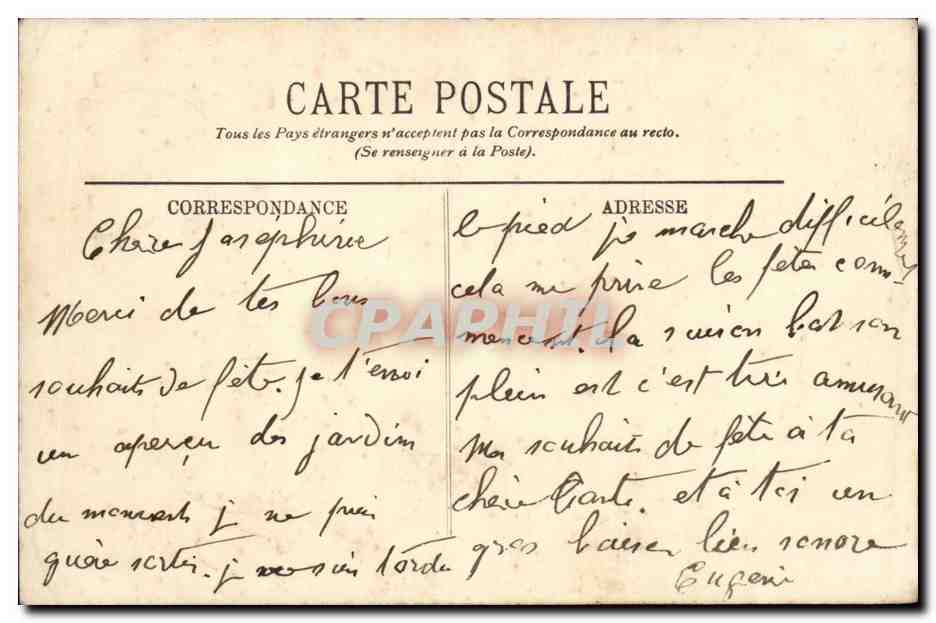 CARTE POSTALE
Tous les Pays étrangers n'acceptent pas la Correspondance au recto.
(Se renseigner à la Poste).
CORRESPONDANCE
Chère Joséphine
Merci de tes bons
souhaits de fête. je t'envoi
un aperçu des jardins
du moment je ne puis
guère sortir. je me suis tordu
ADRESSE
le pied je marche difficilement
cela me prive les fêtes com
mencent. La saison bat son
plein est c'est très amusant
Mes souhaits de fête à ta
chère Tante. et à toi un
gros baiser bien sonore
Eugénie
CPAPHIL